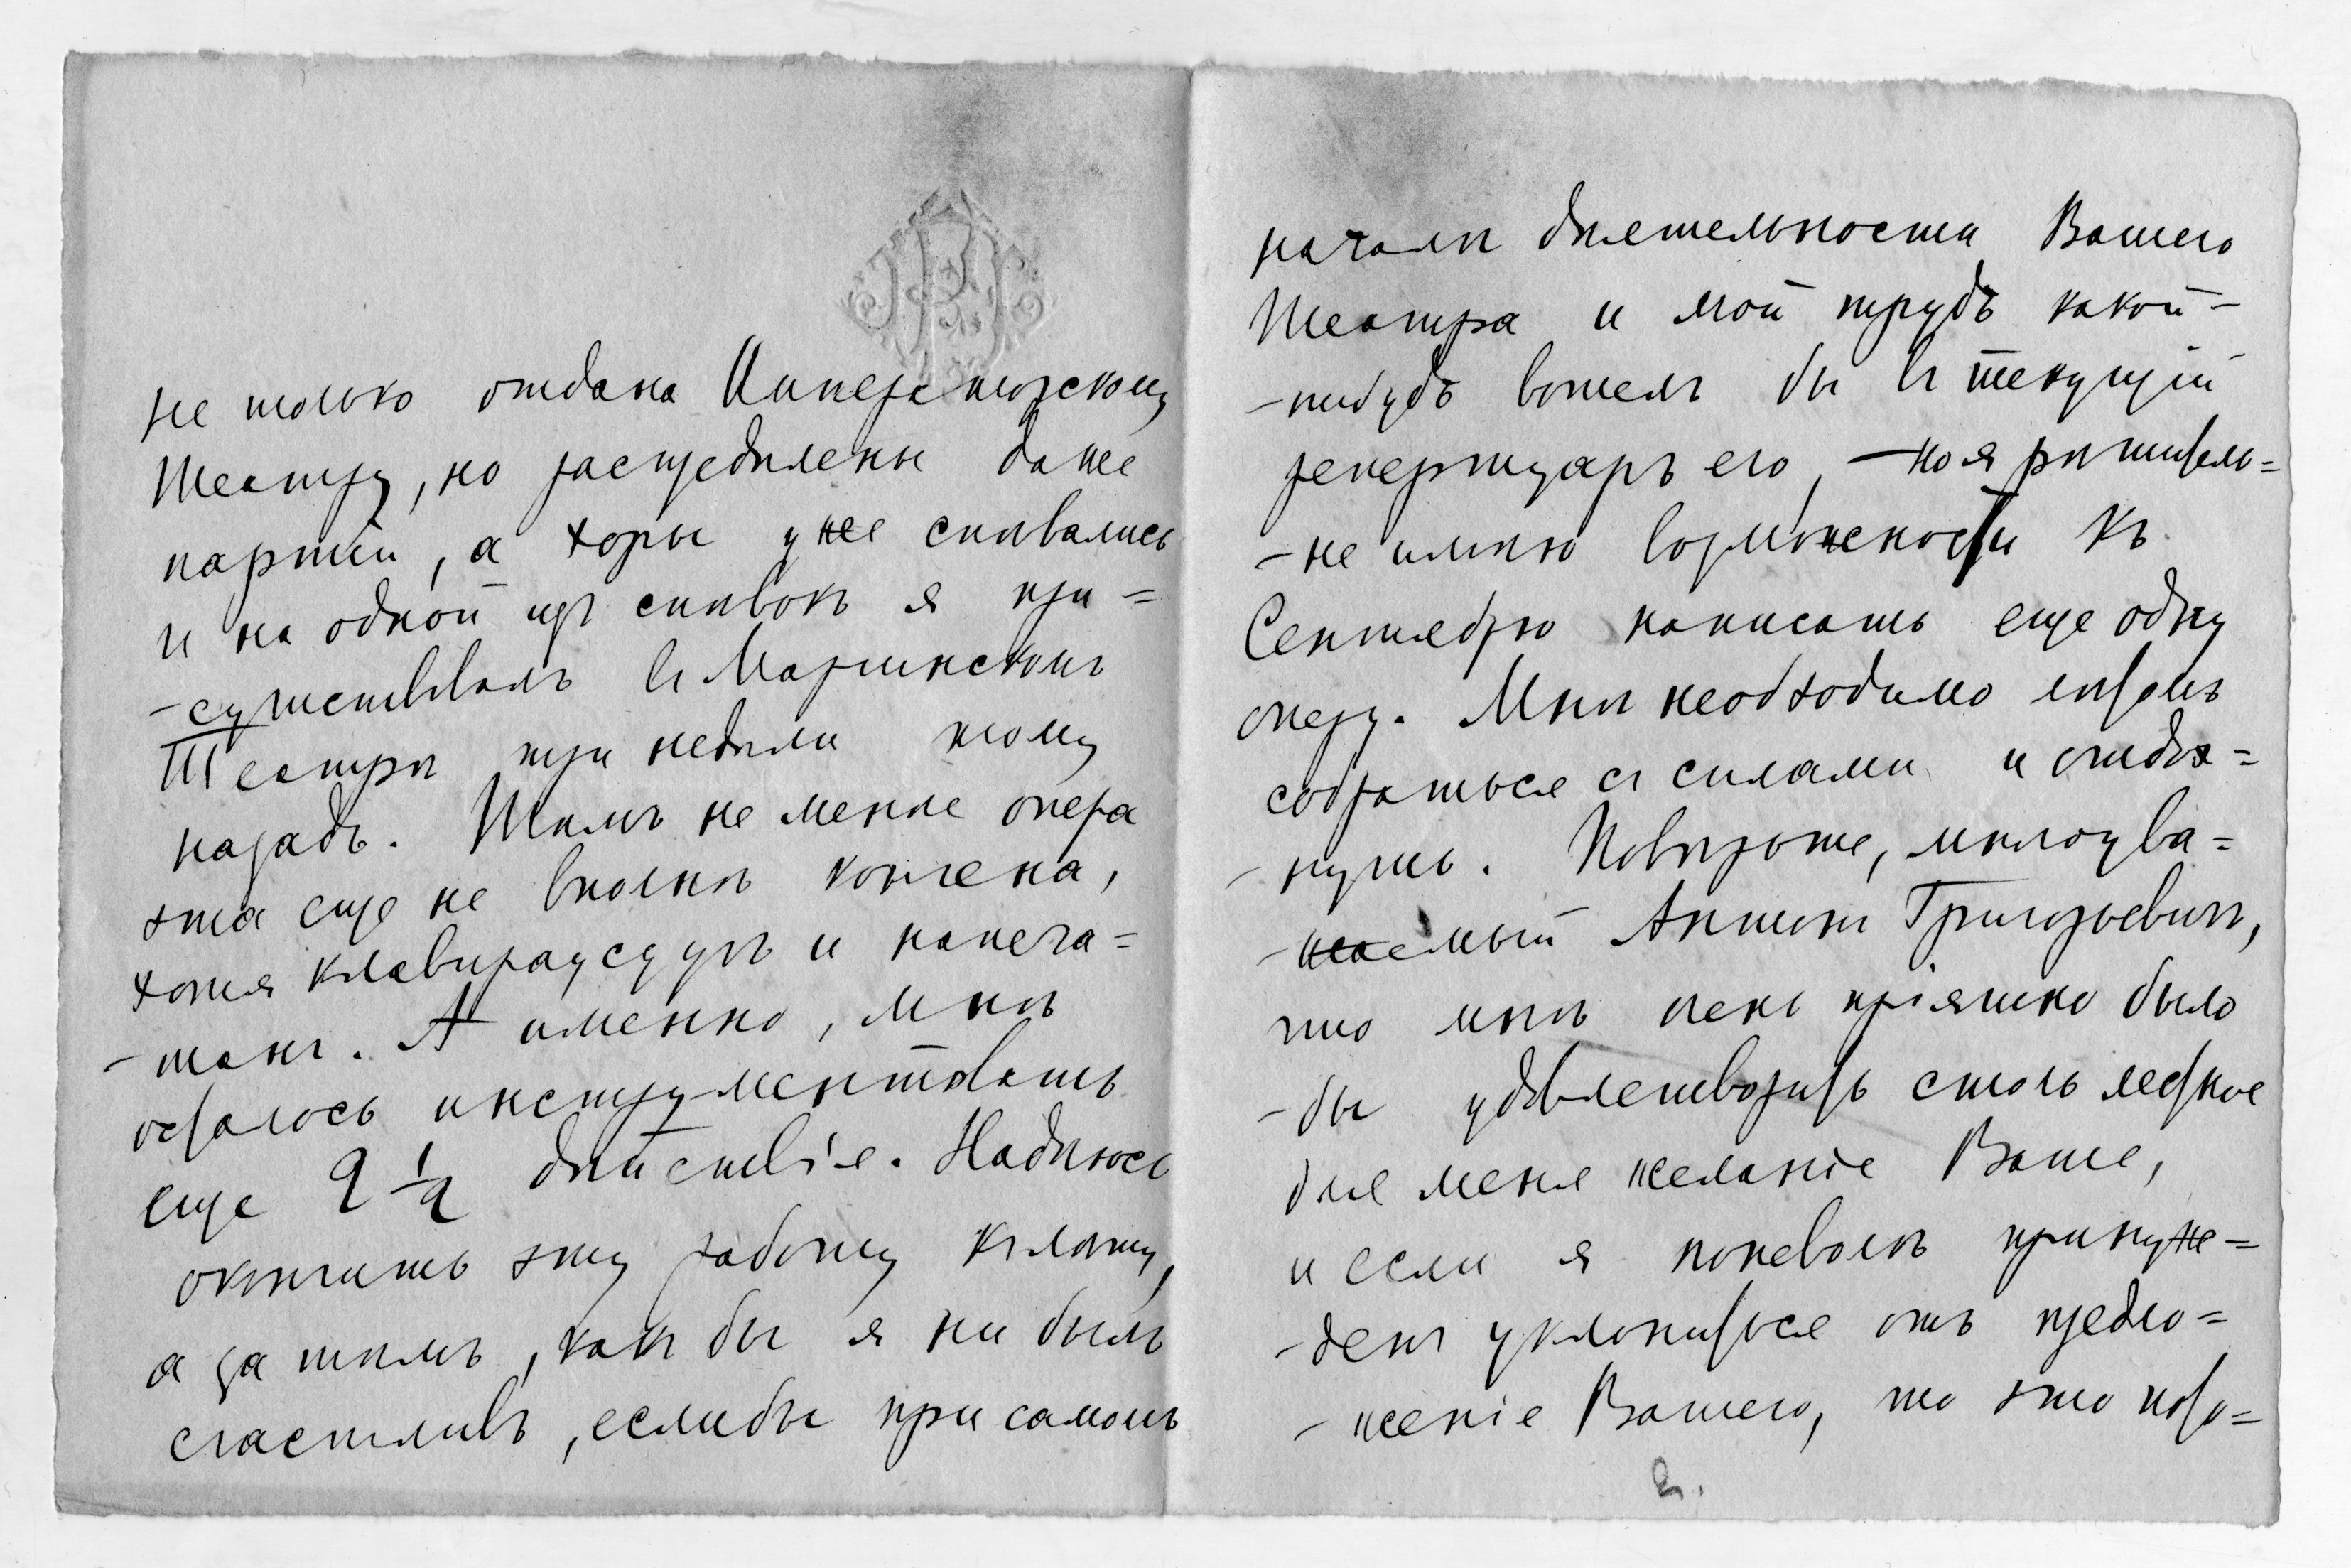 не только отдана Императорскому
Театру, но распредѣлены даже
партіи, а хоры уже спѣвались
и на одной изъ спѣвокъ я при=
-сутствовалъ въ Маріинскомъ
Театрѣ три недѣли тому
назадъ. Тѣмъ не менѣе опера
эта еще не вполнѣ кончена,
хотя клавираусцугъ и напеча=
-танъ. А именно, мнѣ
осталось инструментовать
еще 2 1/2 дѣйствія. Надѣюсь
окончить эту работу къ лѣту,
а за тѣмъ, какъ бы я ни былъ
счастливъ, еслибы при самомъ
началѣ дѣятельности Вашего
Театра и мой трудъ какой-
-нибудь вошелъ бы въ текущій
репертуаръ его, — но я рѣшитель=
-не имѣю возможности къ
Сентябрю написать еще одну
оперу. Мнѣ необходимо лѣтомъ
собраться съ силами и отдох=
-нуть. Повѣрьте, многоува=
-жаемый Антонъ Григорьевичъ,
что мнѣ очень пріятно было
-бы удовлетворить столь лестное
для меня желаніе Ваше,
и если я поневолѣ принуж=
-денъ уклониться отъ предло=
-женія Вашего, то это пото=
2.